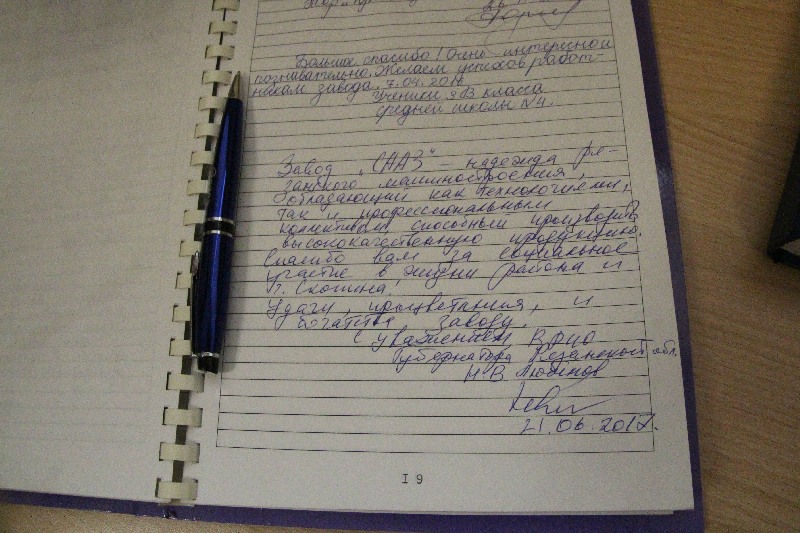 Большое спасибо! Очень интересно и
познавательно. Желаем успехов работ-
никам завода. 7.04.2017
Ученики 8В класса
средней школы №4.
Завод „СААЗ" – надежда ря-
занского машиностроения,
обладающий как технологиями,
так и профессиональным
коллективом способный производить
высококачественную продукцию.
Спасибо вам за социальное
участие в жизни района и
г. Скопина,
Удачи, процветания, и
богатства заводу.
С уважением ВРИО
Губернатора Рязанской обл.
Н.В. Любимов
21.06.2017.
19